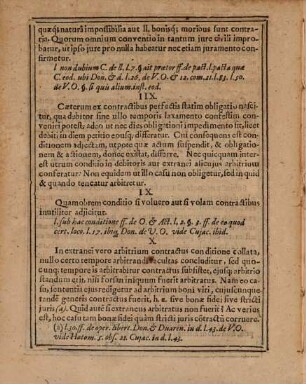 quæq; natura impossibilia aut ll. bonisq; moribus sunt contra-
ria. Quorum omnium conventio in tantum jure civili impro-
batur, ut ipso jure pro nulla habeatur nec etiam juramento con-
firmetur.
l non dubium C. de ll. l. 7. §. ait prætor ff. de pact. l. pacta quæ
C. eod. ubi Don. & d. l. 26. de V. O & 12. com. 21. l. 83. l. 50.
de V. O. §. si quis alium. inst. eod.
IIX.
Cæterum ex contractibus perfectis statim obligatio nasci-
tur, qua debitor sine ullo temporis laxamento confestim conve-
niri potest; adeo ut nec dies obligationi impedimento sit, licet
debiti in diem petitio eousq; differatur. Cui consequens est con-
ditionem adjectam, utpote quæ actum suspendit, & obligatio-
nem & actionem, donec existat, differre. Nec quicquam inter-
est utrum conditio in debitoris aut extranei alicujus arbitrium
conferatur: Non equidem ut illi casu non obligetur, sed quid &
quando teneatur arbitretur.
IX.
Quamobrem conditio si voluero aut si volam contractibus
inutiliter adjicitur.
l. sub hac conditione ff. de O. & Act. l. 2. §. 2. ff. de eo quod
cert. loco. l. 17. ibiq; Don. de V. O. vide Cujac. ibid.
X
In extranei vero arbitrium contractus conditione collata,
nullo certo tempore arbitrandi facultas concluditur, sed quo-
cunq; tempore is arbitrabitur contractus subsistet, ejusq; arbitrio
standum erit nisi forsan iniquum fuerit arbitratus. Nam eo ca-
su, sententia ejus redigetur ad arbitrium boni viri, cujuscunque
tandem generis contractus fuerit, h. e. sive bonæ fidei sive stricti
juris (a). Quid autem si extraneus arbitratus non fuerit? Ac verius
est, hoc casu tam bonæ fidei quàm stricti juris contractũ corruere.
(a) l. 30. ff. de oper. libert. Don. & Duaren. in d. l. 43. de V. O.
vide Hotom. 5. obs. 22. Cujac. in d. l. 43.